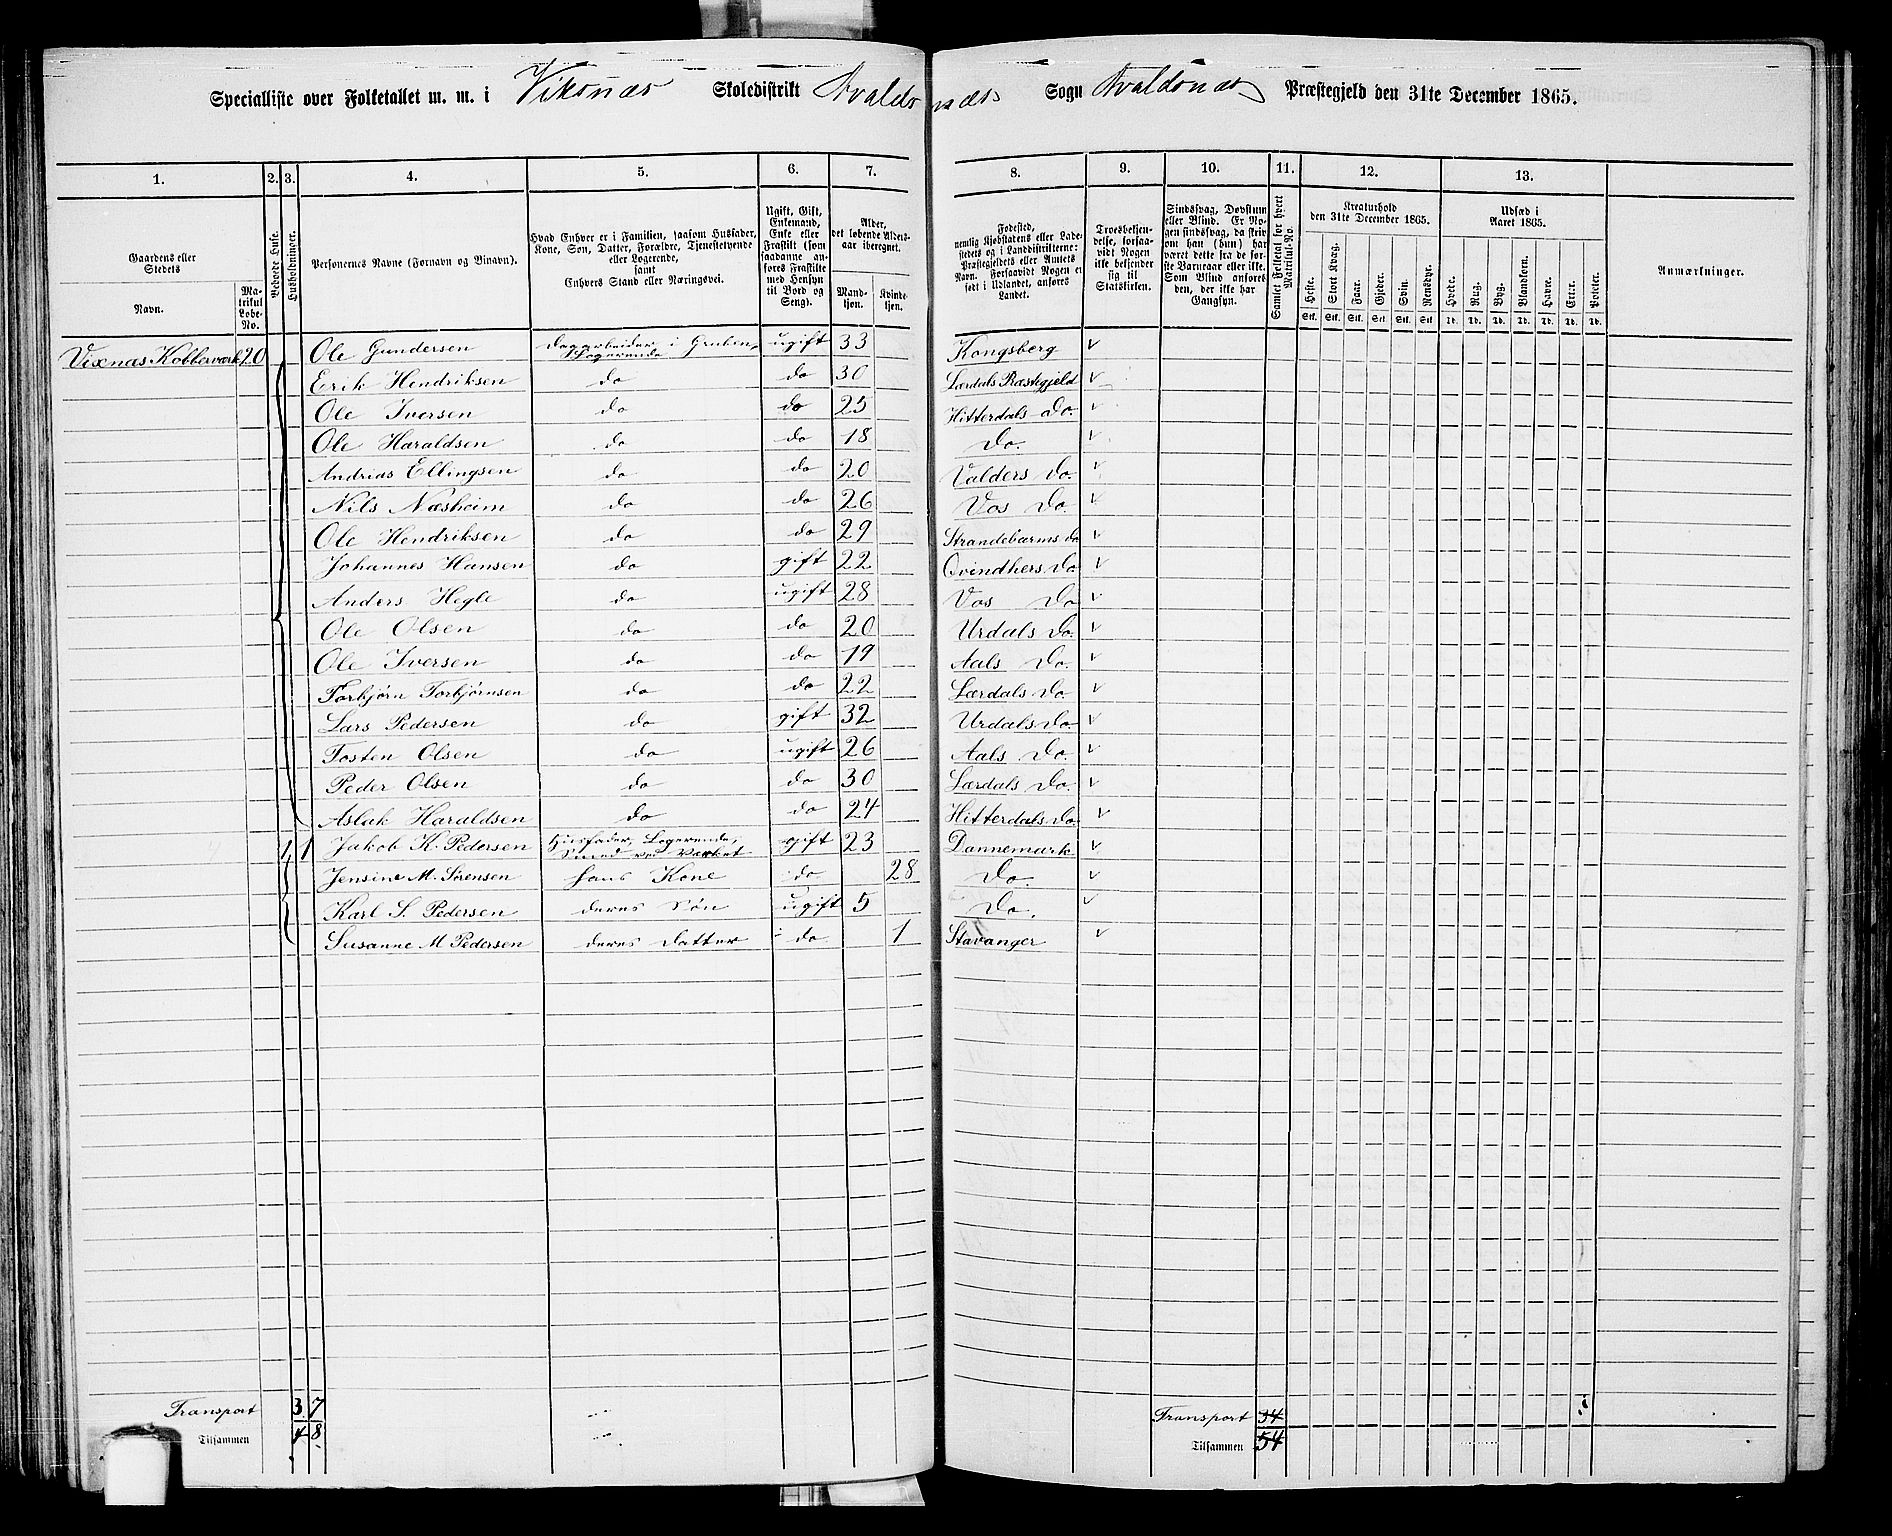 Specialliste over Folketallet m. m. i Viksnæs Skoledistrikt Avaldsnæs Sogn Avaldsnæs Præstegjeld den 31te December 1865.
1. 2. 3. 4. 5. 6. 7. 8. 9. 10. 11. 12. 13.
Gaardens eller Stedets
Navn.
Matrikul Løbe-No.
Beboede Huse.
Husholdninger.
Personernes Navne (Fornavn og Vinavn).
Hvad Enhver er i Familien, saasom Husfader, Kone, Søn, Datter, Forældre, Tjenestetyende eller Logerende,
samt
Enhvers Stand eller Næringsvei.
Ugift, Gift, Enkemand, Enke eller Fraskilt (som saadanne anføres Fraskilte med Hensyn til Bord og Seng).
Alder, det løbende Aldersaar iberegnet.
Mandkjøn. Kvindekjøn.
Fødested, nemlig Kjøbstadens eller Ladestedets og i Landdistrikterne: Præstegjeldets eller Amtets Navn. Forsaavidt Nogen er født i Udlandet, anføres Landet.
Troesbekjendelse, forsaavidt Nogen ikke bekjender sig til Statskirken.
Sindssvag, Døvstum eller Blind. Er Nogen sindssvag, da skrives om han (hun) har været det fra de første Barneaar eller ikke. Som Blind anføres den, der ikke har Gangsyn.
Samlet Folketal for hvert Matrikul-No.
Kreaturhold den 31te December 1865.
Heste. Stort Kvæg. Faar. Gjeder. Svin. Rensdyr.
Stk. Stk. Stk. Stk. Stk. Stk.
Udsæd i Aaret 1865.
Hvede. Rug. Byg. Blandkorn. Havre. Erter. Poteter.
Td. Td. Td. Td. Td. Td. Td.
Anmærkninger.
Vixnas Kobberværk 20 Ole Gundersen Dagarbeider i Gruben, Logerende ugift 33 Kongsberg v
Erik Hendriksen do do 30 Lærdals Præstegjeld v
Ole Iversen do do 25 Hitterdals Do. v
Ole Haraldsen do do 18 Do. v
Andrias Ellingsen do do 20 Valders Do. v
Nils Næsheim do do 26 Vos Do. v
Ole Hendriksen do do 29 Strandebarms Do v
Johannes Hansen do gift 22 Qvindhers Do v
Anders Hegle do ugift 28 Vos Do v
Ole Olsen do do 20 Urdals Do. v
Ole Iversen do do 19 Aals Do. v
Torbjørn Torbjørnsen do do 22 Lærdals Do. v
Lars Pedersen do gift 32 Urdals Do v
Tosten Olsen do ugift 26 Aals Do. v
Peder Olsen do do 30 Lærdals Do. v
Aslak Haraldsen do do 24 Hitterdals Do. v
1 1 Jakob K. Pedersen Husfader, Logerende, Smed ved Værket gift 23 Dannemark v
Jensine M. Sørensen hans Kone do 28 Do. v
Karl S. Pedersen deres Søn ugift 5 Do. v
Susanne M Pedersen deres Datter do 1 Stavanger v
Transport 3 7 Transport 34
Tilsammen 4 8 Tilsammen 54